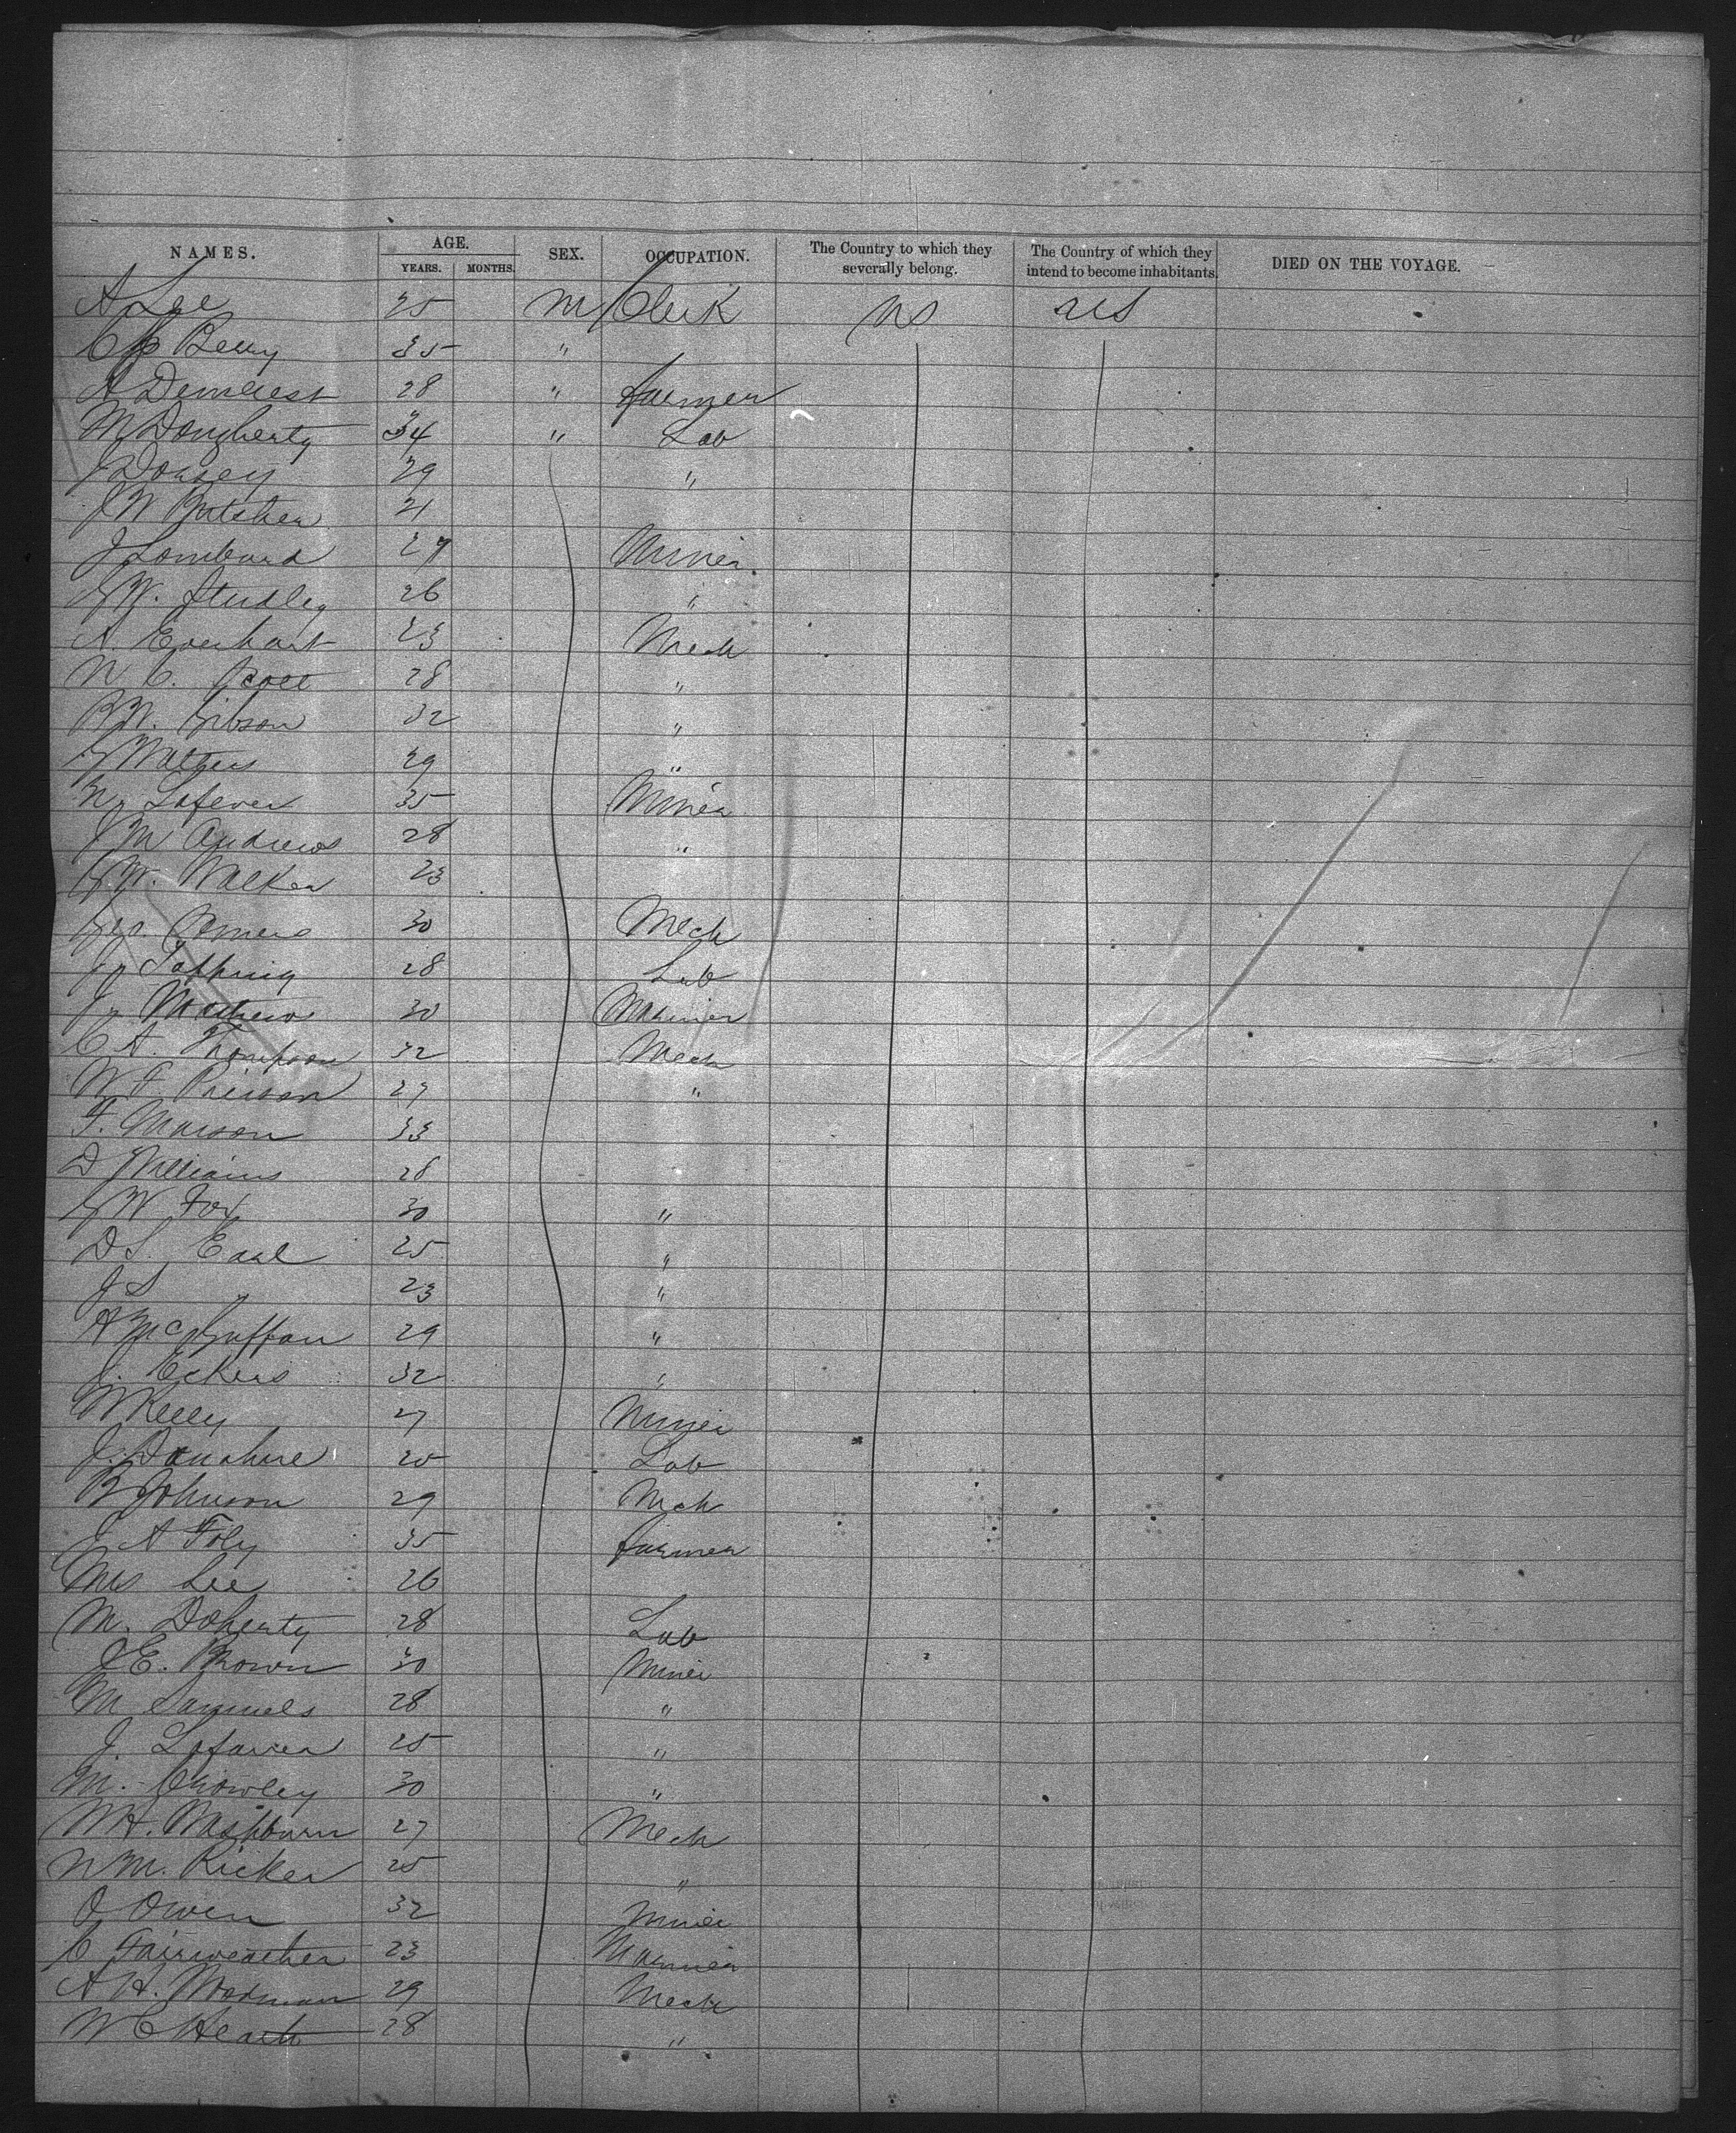 NAMES. AGE. SEX. OCCUPATION. The Country to which they severally belong. The Country of which they intend to become inhabitants. DIED ON THE VOYAGE.
YEARS. MONTHS.
A Lee 25 M Clerk US US
Berry 35 "
A Demerest 28 " farmer
M Dougherty 34 " Lab
J Dorsey 29 "
J W Butcher 21
J Lombard 27 Miner
G W. Studley 26 "
A. Everhart 23 Mech
N C. 28 "
R W. Gibson 32 "
G Walters 29 "
Lafever 35 Miner
J M Andrews 28 "
G W. Walker 23
Geo. Romers 30 Mech
J Topping 28 Lab
J Mathews 30 Mariner
C A. Thompson 32 Mech
W F Pierson 27 "
F. Marson 33
D Williams 28
G W Fox 30 "
D S. Earl 25 "
J S " 23 "
A McGuffan 29 "
J. Eckers 32 "
W Kelly 27 Miner
J. Donahue 25 Lab
B Johnson 29 Mch
J A Foly 35 farmer
Mrs Lee 26
M. Doherty 28 Lab
J E. Brown 30 Miner
M Samuels 28 "
J. Lafarier 25 "
M. Crowley 30 "
W H. Washburn 27 Mech
W M. Ricker 25 "
O Owen 32 Miner
C Fairweather 23 Marinier
A H. Woodman 29 Mech
W C Heath 28 "